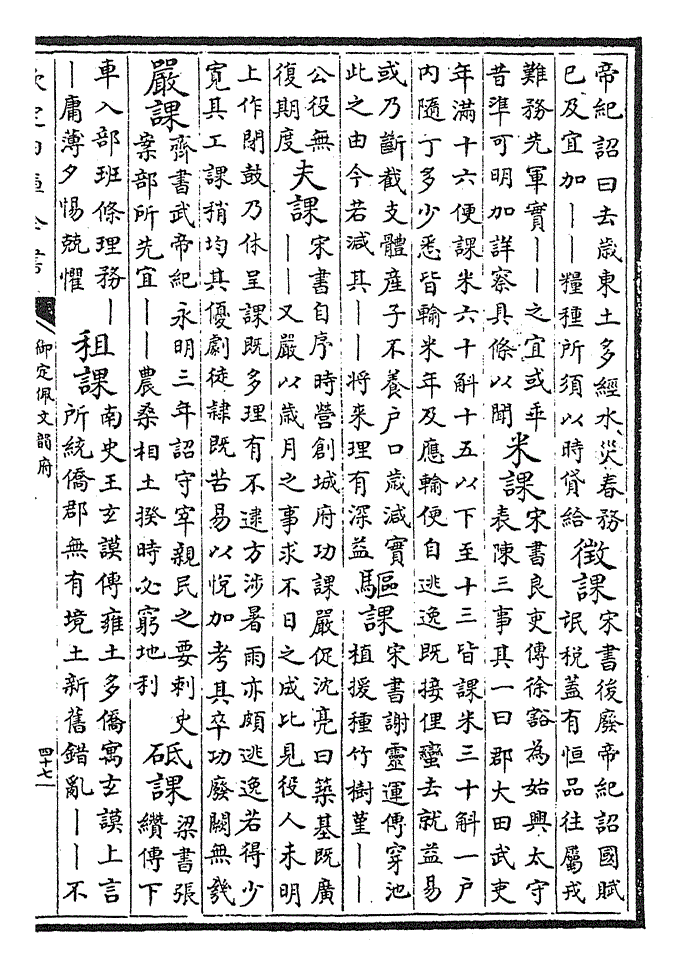 帝紀詔曰去歲東土多經水災春務
已及宜加——糧種所須以時貸給
徵課
宋書後廢帝紀詔國賦
氓稅蓋有恒品往屬戎
難務先軍實——之宜或乖
昔準可明加詳察具條以聞
米課
宋書良吏傳徐豁為始興太守
表陳三事其一曰郡大田武吏
年滿十六便課米六十斛十五以下至十三皆課米三十斛一戶
內隨丁多少悉皆輸米年及應輸便自逃逸既接俚蠻去就益易
或乃斷截支體產子不養戶口歲減實
此之由今若減其——將來理有深益
驅課
宋書謝靈運傳穿池
植援種竹樹堇——
公役無
復期度
夫課
宋書自序時營創城府功課嚴促沈亮曰築基既廣
——又嚴以歲月之事求不日之成比見役人未明
上作閉鼓乃休呈課既多理有不逮方涉暑雨亦頗逃逸若得少
寬其工課稍均其優劇徒隸既苦易以悅加考其卒功廢闕無幾
嚴課
齊書武帝紀永明三年詔守宰親民之要刺史
案部所先宜——農桑相土揆時必窮地利
砥課
梁書張
纘傳下
車入部班條理務—
—庸薄夕惕兢懼
租課
南史王玄謨傳雍土多僑寓玄謨上言
所統僑郡無有境土新舊錯亂——不
御定佩文韻府
四十七